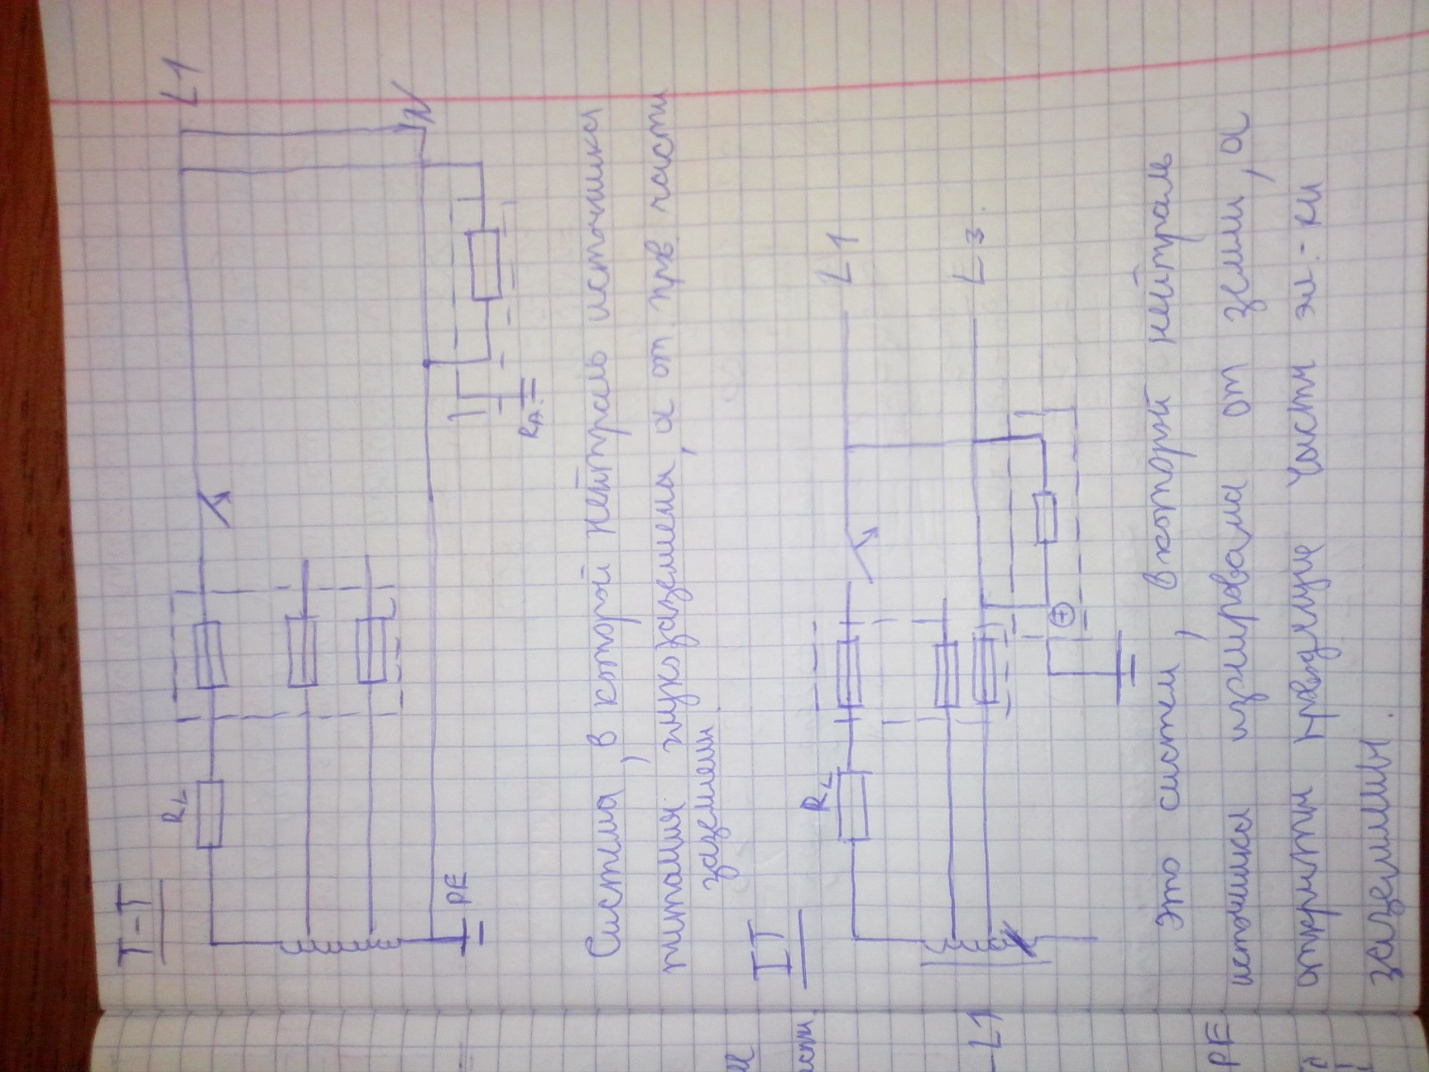 T-T
RL
L1
N
PE
RA
Система, в которой нейтраль источника
питания глухозаземлена, а от. пров. части
заземлен.
IT
RL
L1
L3
Это систем, в которой нейтраль
источника изолирована от земли, а
открыты проводящие части эл.-ки
заземлины.
L1
PE